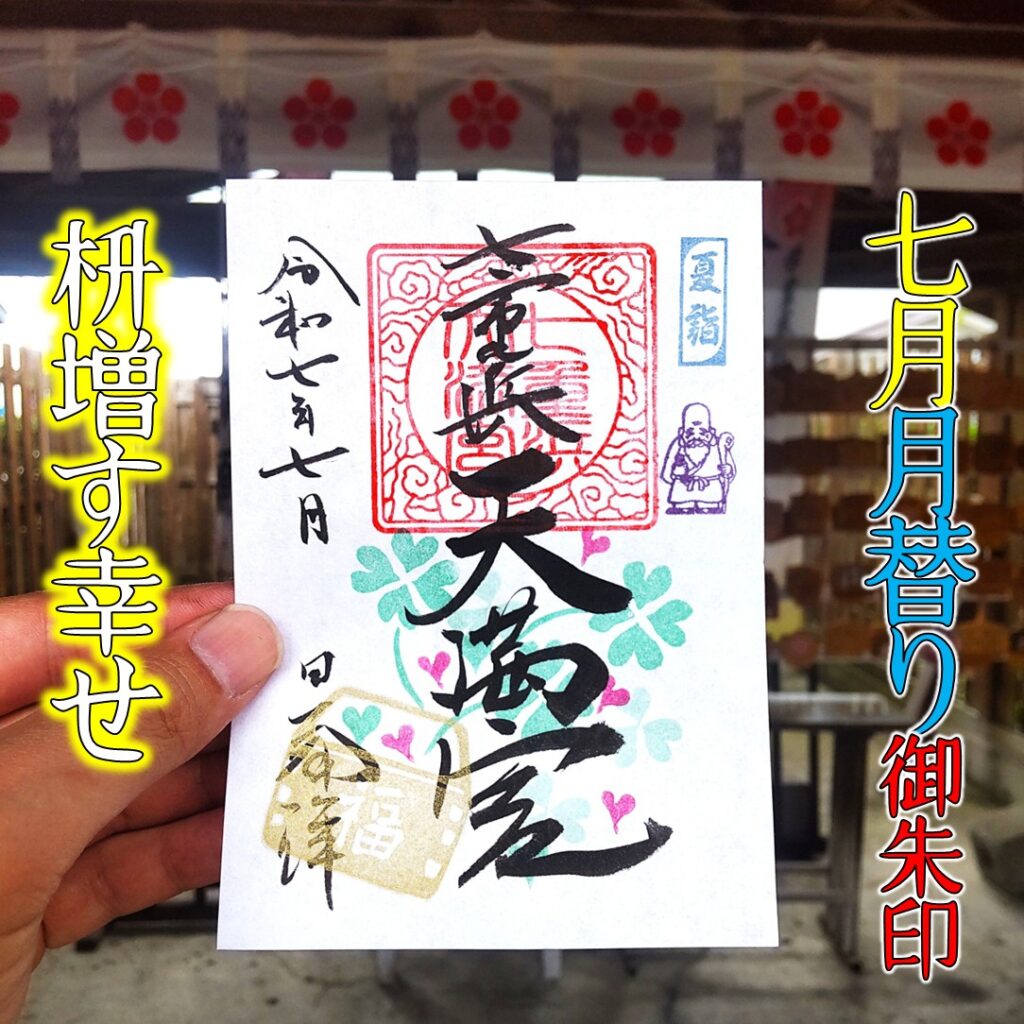 七月月替り御朱印
夏詣
七重浜天満宮
令和七年七月 日 奉拝
福
枡増す幸せ